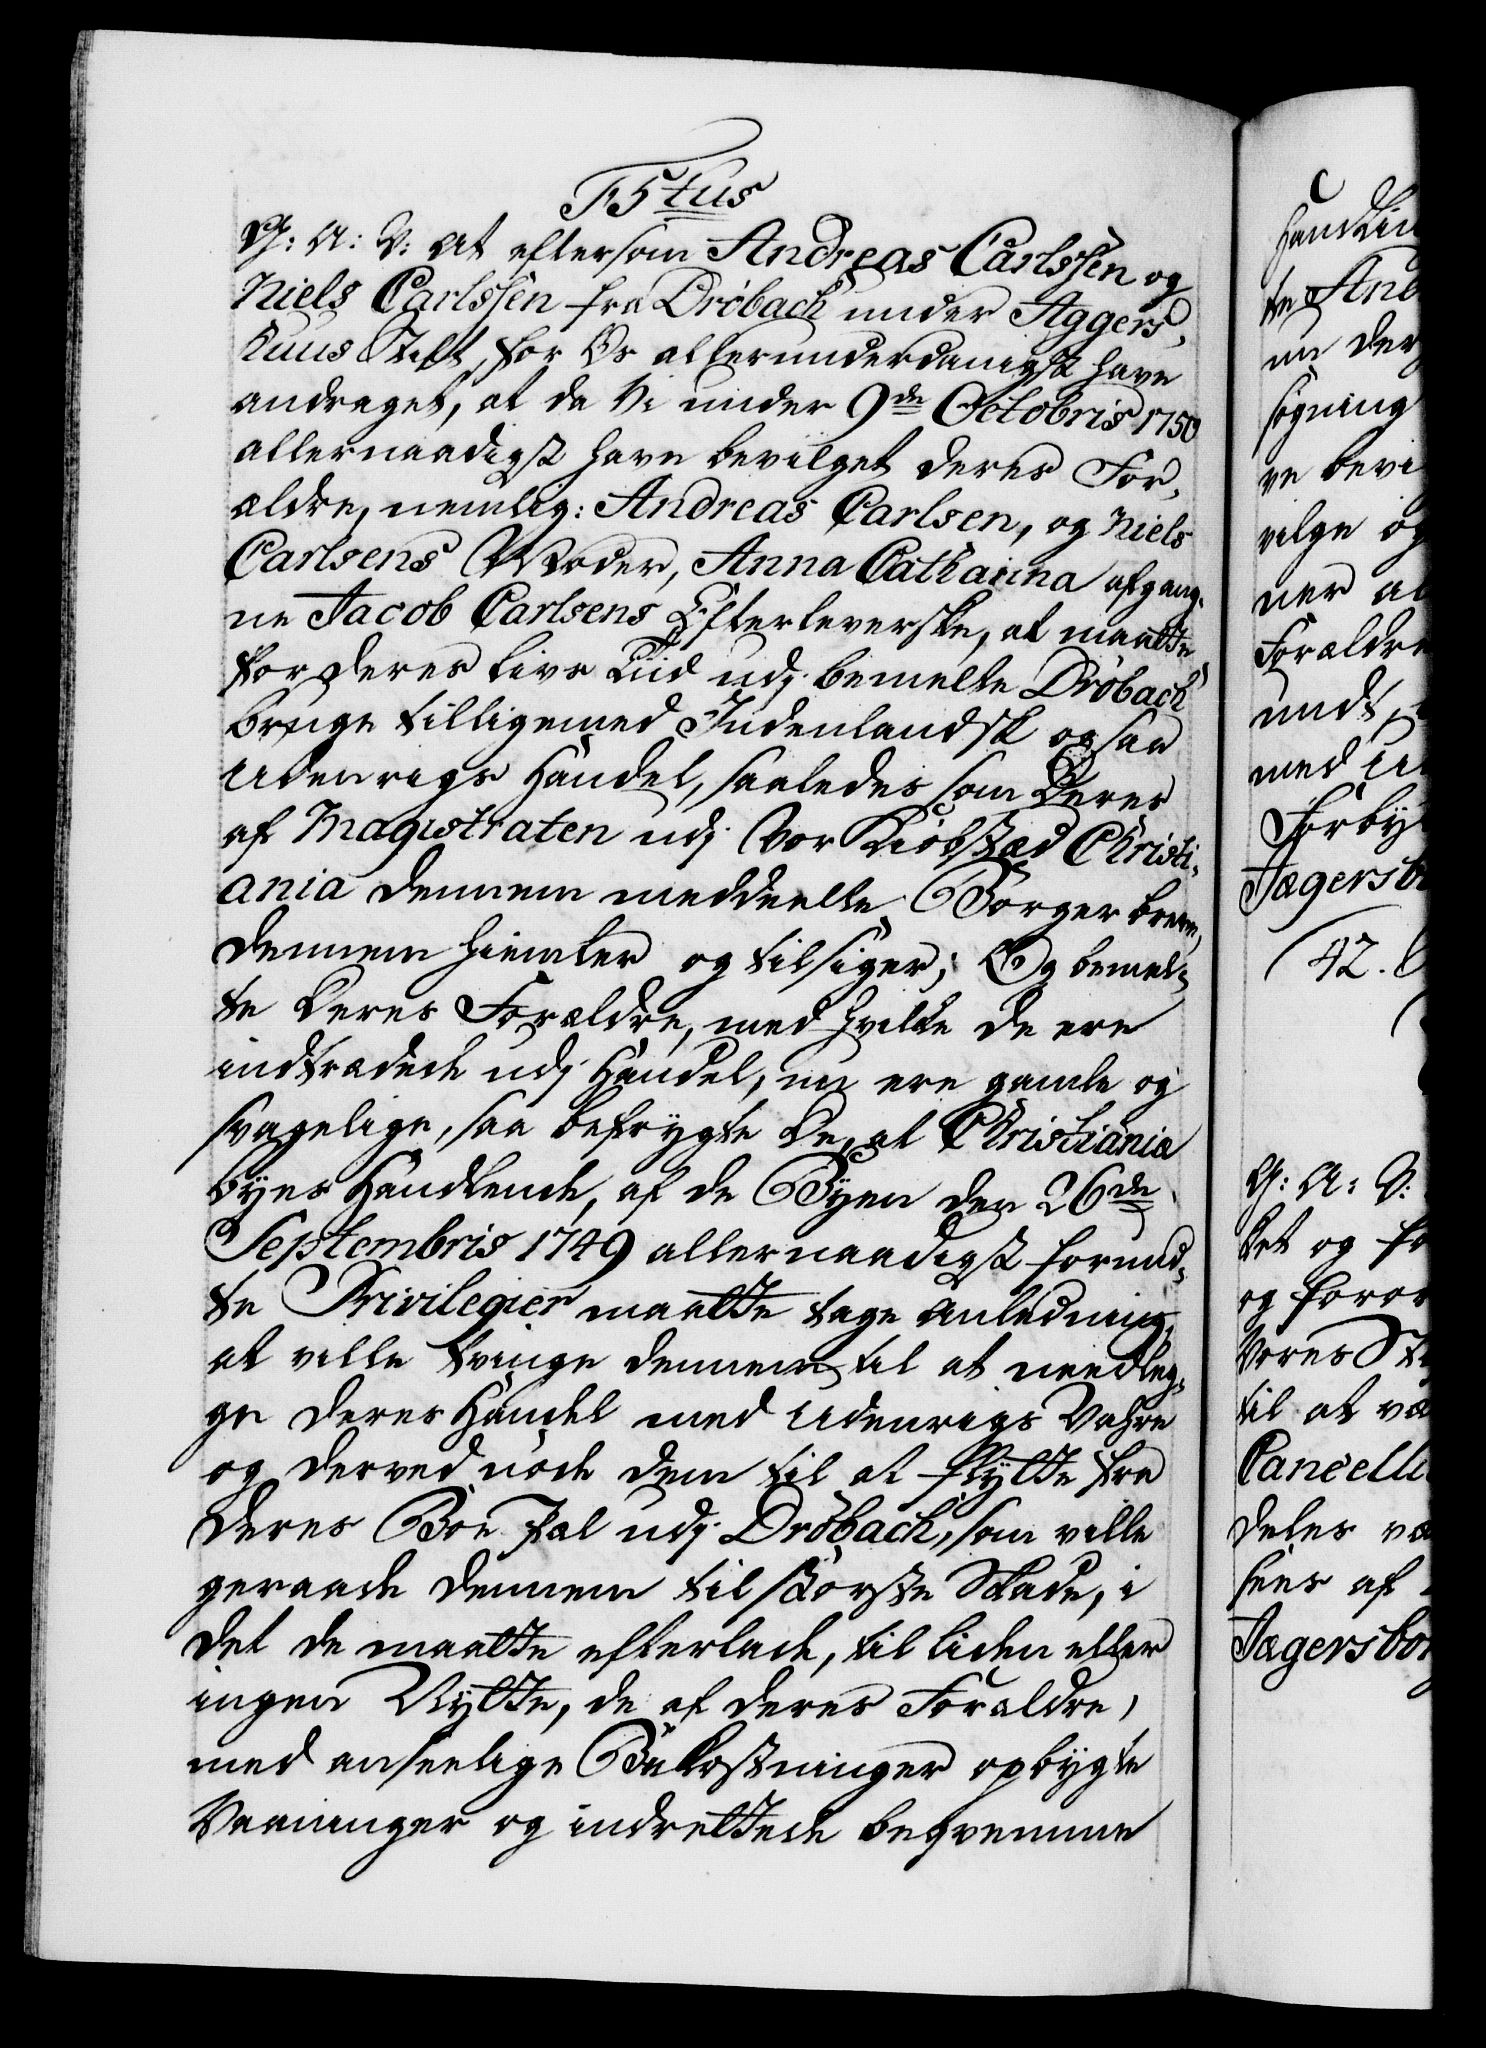 F5tus
G: A: V: at eftersom Andreas Carlssen og
Niels Carlssen fra Dröbach under Aggers,
huus Stift, for Os allerunderdanigst have
andraget, at da Vi under 9de Octobris 1750
allernaadigst have bevilget deres For,
ældre, nemlig: Andreas Carlsen, og Niels
Carlsens Moder, Anna Catharina afgang,
ne Jacob Carlsens Efterleverske, at maatte
for deres livs Tiid udj bemelte Dröbach
bruge tilligemed Indenlandsk ogsaa
Udenrigs Handel, saaledes som deres
af Magistraten udj Vor Kiöbstæd Christi,
ania dennem meddeelte Borger breve,
dennem hiemler og tilsiger; Og bemel,
te deres Forældre, med hvilke de ere
indtrædede udj Handel, nu ere gamle og
svagelige, saa befrygte de, at Christiania
byes Handlende, af de Byen den 26de
Septembris 1749 allernaadigst forund,
te Privilegier maatte tage Anledning,
at ville tvinge dennem til at needleg,
ge deres Handel med Udenrigs Vahre
og derved nöde dem til at flytte fra
deres Boe Pæl udj Dröbach, som ville
geraade dennem til störste Skade, i
det de maatte efterlade, til liden eller
ingen Nytte, de af deres Forældre,
med anseelige Bekostninger opbygte
Vaaninger og indrettede beqvemme
handlin
te And
nu der
sögning
ve bevi
vilge og
ner al
Forældre
undt,
med U
Forby
Jægersb
(42.
G: A: V:
det og fo
og foror
Vores St
til at væ
Cancelli
deles væ
sees af
Jægersbor